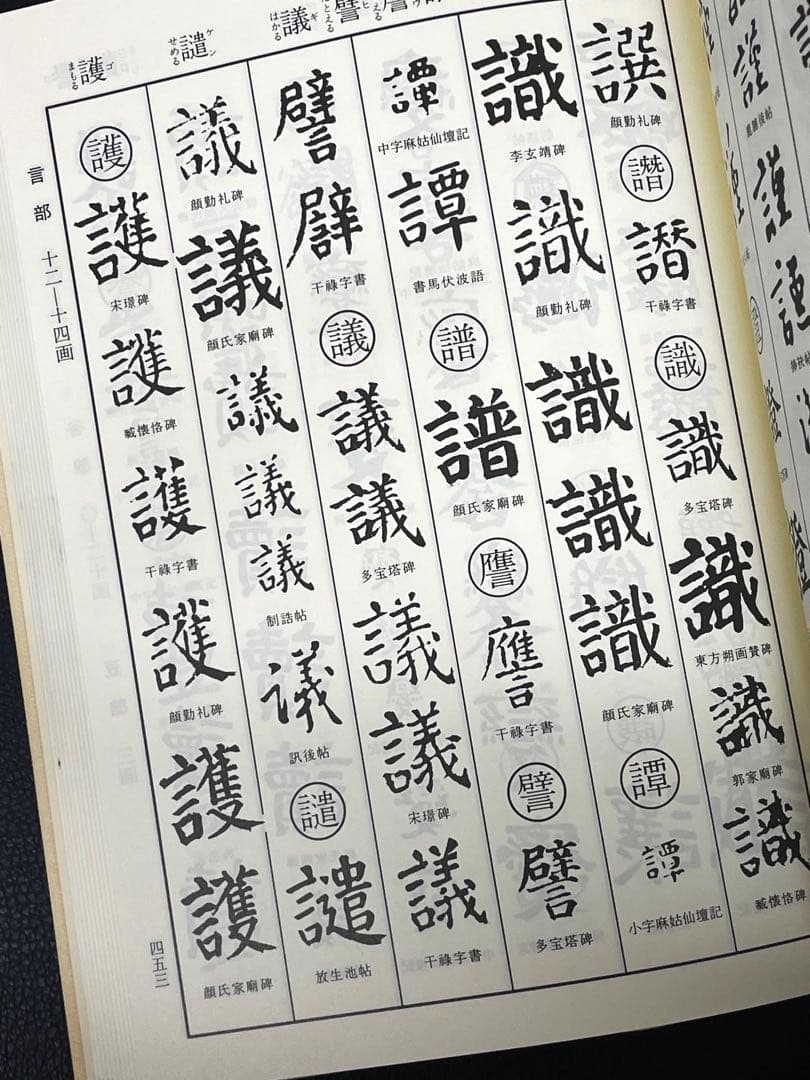 譬 ヒ たとえる
議 ギ はかる
譴 ケン せめる
護 ゴ まもる
譔 顔勤礼碑
譖
譖 干祿字書
識
識 多宝塔碑
識 東方朔画賛碑
識 郭家廟碑
識 臧懐恪碑
識 李玄靖碑
識 顔勤礼碑
識
識
識 顔氏家廟碑
譚
譚 小字麻姑仙壇記
譚 中字麻姑仙壇記
譚 書馬伏波語
譜
譜 顔氏家廟碑
譍
譍 干祿字書
譬
譬 多宝塔碑
譬
譬 干祿字書
議
議
議 多宝塔碑
議
議 宋璟碑
議 干祿字書
議 顔勤礼碑
議 顔氏家廟碑
議
議
議 制誥帖
議 訊後帖
譴
譴 放生池帖
護
護 宋璟碑
護 臧懐恪碑
護 干祿字書
護 顔勤礼碑
護
護 顔氏家廟碑
言部 十二―十四画
四五三